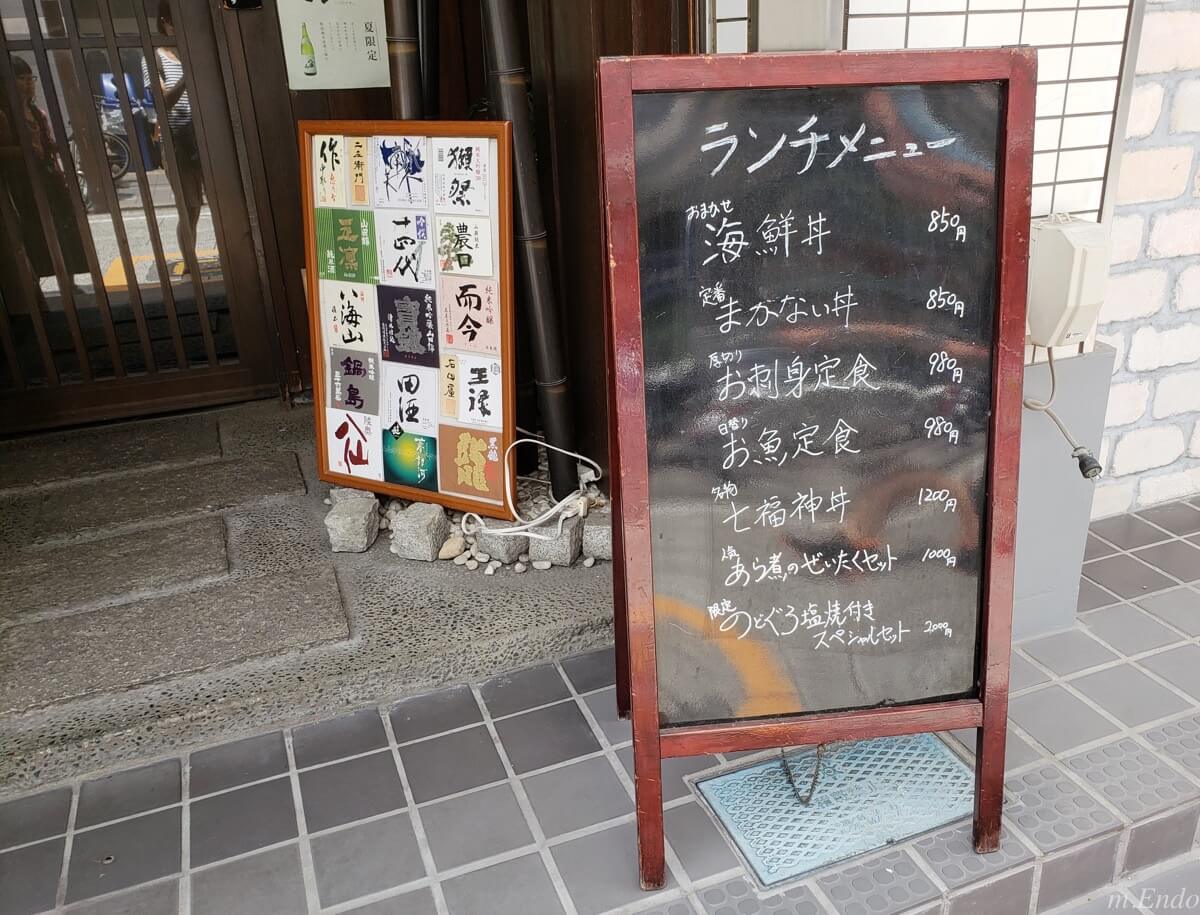 夏限定
作
二左衛門
獺祭
十四代
農口
正凛
八海山
純米吟醸
而今
鍋島
田酒
王祿
八仙
黒龍
ランチメニュー
おまかせ
海鮮丼 850円
定番
まかない丼 850円
厚切り
お刺身定食 980円
日替り
お魚定食 980円
名物
七福神丼 1200円
人気
あら煮のぜいたくセット 1000円
限定
のどぐろ塩焼付き
スペシャルセット 2,000円
m.Endo